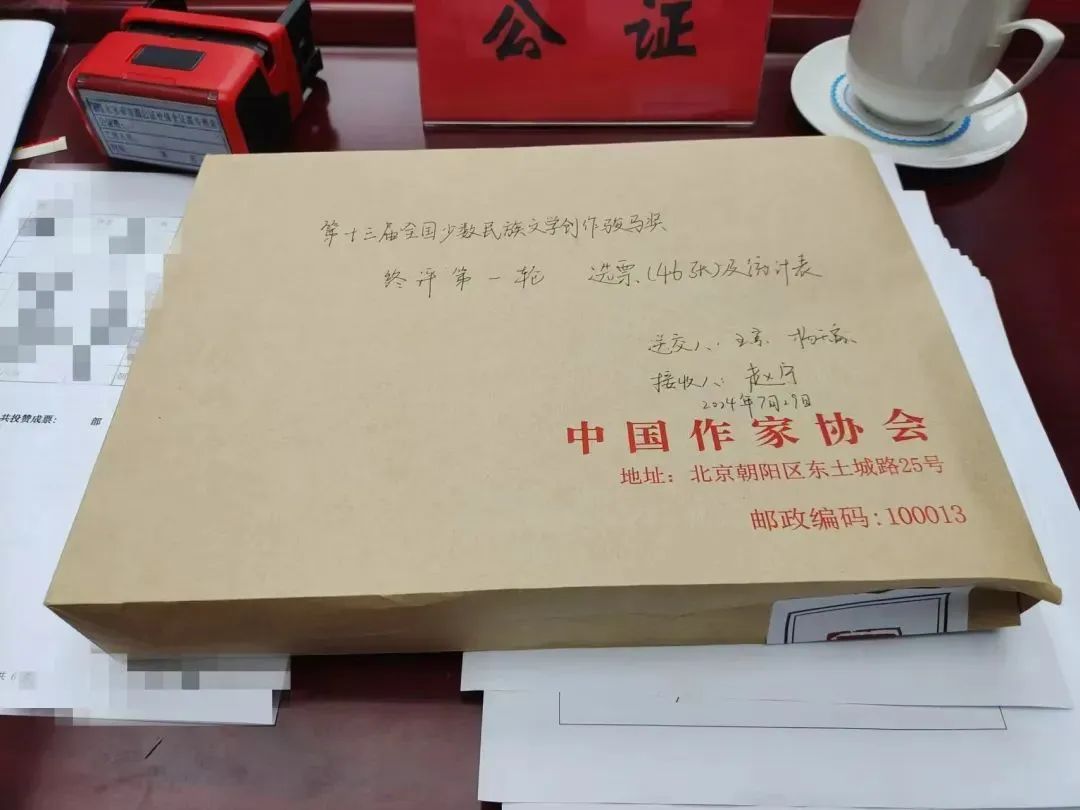 公证
第十三届全国少数民族文学创作骏马奖
终评第一轮 选票(46张)及统计表
送交人: 王京
接收人: 赵宁
2024年7月29日
中国作家协会
地址: 北京朝阳区东土城路25号
邮政编码:100013
共投赞成票: 部
共 6